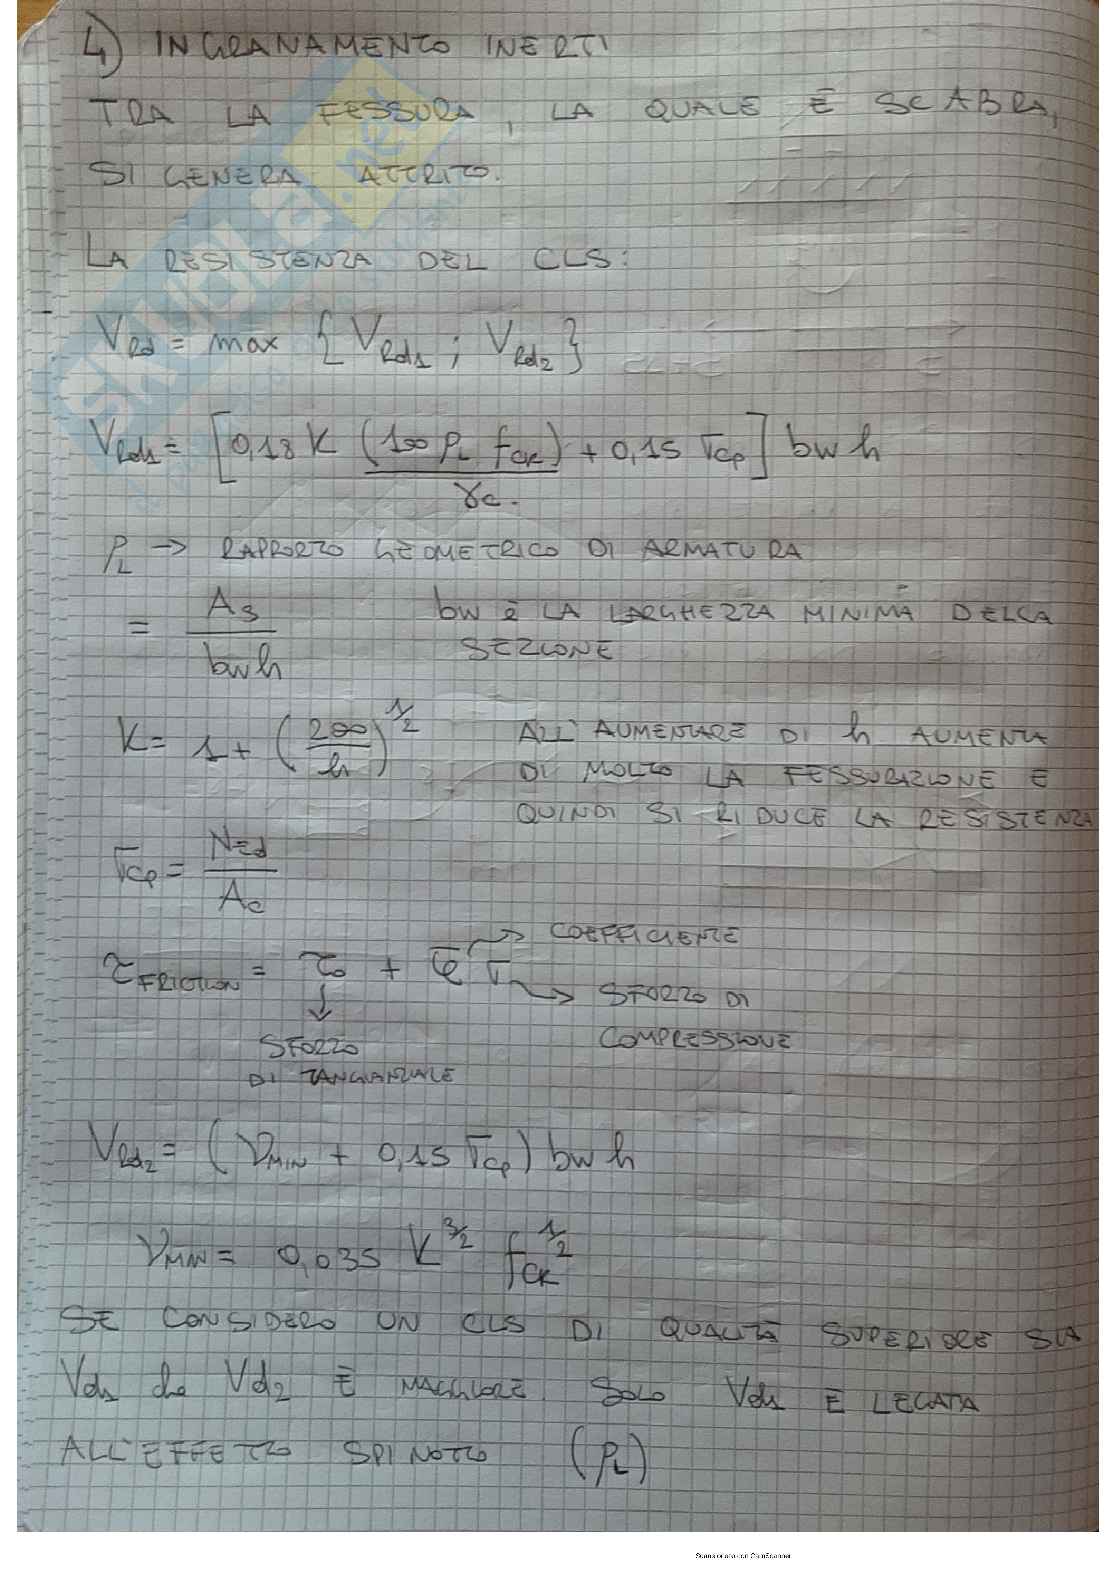 4) INGRANAMENTO INERTI
TRA LA FESSURA, LA QUALE È SCABRA,
SI GENERA ATTRITO.
LA RESISTENZA DEL CLS:
VRd = max { VRd1 ; VRd2 }
VRd1 = [0,18 K (100 ρL fCK)/γc + 0,15 σcp] bw h
ρL → RAPPORTO GEOMETRICO DI ARMATURA
= As/(bw h) bw È LA LARGHEZZA MINIMA DELLA
SEZIONE
K = 1 + (200/h)^1/2 ALL'AUMENTARE DI h AUMENTA
DI MOLTO LA FESSURAZIONE E
QUINDI SI RIDUCE LA RESISTENZA
σcp = NEd/Ac
τFRICTION = τ0 + φ σ → COEFFICIENTE
→ SFORZO DI
COMPRESSIONE
↓
SFORZO
DI TANGIANZIALE
VRd2 = (νMIN + 0,15 σcp) bw h
νMIN = 0,035 K^3/2 fCK^1/2
SE CONSIDERO UN CLS DI QUALITÀ SUPERIORE SIA
Vd1 che Vd2 È MAGGIORE SOLO Vd1 È LEGATA
ALL'EFFETTO SPINOTTO (ρL)
SKUOLA.net